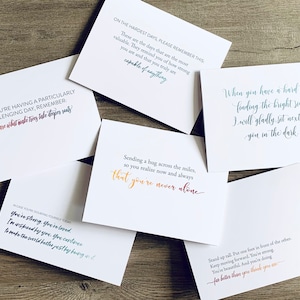 ON THE HARDEST DAYS, PLEASE REMEMBER THIS:
These are the days that are the most
valuable. They remind you of how strong
you are and that you truly are
capable of anything.
When you have a hard
finding the bright s
I will gladly sit next
you in the dark
U'RE HAVING A PARTICULARLY
LENGING DAY, REMEMBER:
are what make trees take deeper roots!
Sending a hug across the miles,
so you realize now and always
that you're never alone.
You're strong. You're loved.
I'm inspired by you. You continue
to make the world better, just by being in it
Stand up tall. Put one foot in front of the other.
Keep moving forward. You're strong.
You're beautiful. And you're doing
far better than you think you are.